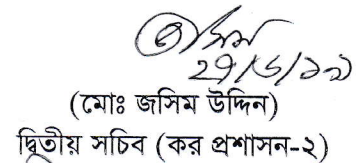 ২৭/৬/১৯
(মোঃ জসিম উদ্দিন)
দ্বিতীয় সচিব (কর প্রশাসন-২)